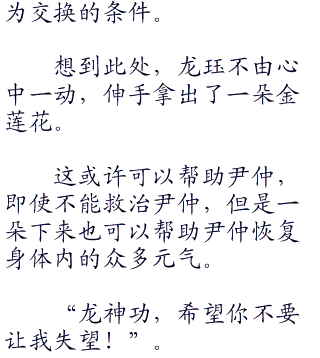 为交换的条件。
想到此处，龙珏不由心
中一动，伸手拿出了一朵金
莲花。
这或许可以帮助尹仲，
即使不能救治尹仲，但是一
朵下来也可以帮助尹仲恢复
身体内的众多元气。
“龙神功，希望你不要
让我失望！”。